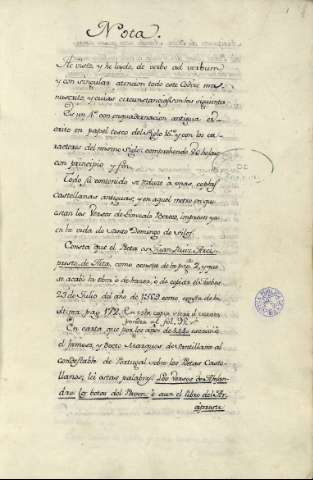 Nota.
He visto, y he leido, de verbo ad verbum
y con singular atencion todo este Codice ma-
nuscrito, y cuias circunstancias son las siguientes
Es un 4º con enquadernacion antigua escrito
en papel tosco del Siglo 16º y con los ca-
racteres del mismo Siglo: comprehende 98 hojas
con principio y fin.
Todo su contenido se reduce à unas coplas
Castellanas antiguas, y en aquel metro en que
estan los Versos de Gonzalo Berceo, impresos ya
en la vida de Santo Domingo de Silos.
Consta que el Poeta es Juan Ruiz Arci-
preste de Hita, como consta de la pagª 2, y que
se acabò la obra ò de hacer, ò de copiar el Jueves
23 de Julio del año de 1389 como consta de la
ultima pag. 172. En esta copia
fol. 98
En carta, que por los años de escrivio
el famoso, y Docto Marques de Santillana al
Condestable de Portugal sobre los Poetas Caste-
llanos, leí estas palabras: Los Versos de Alexan-
dro los botos del Pavon è aun el libro del Ar-
cipreste